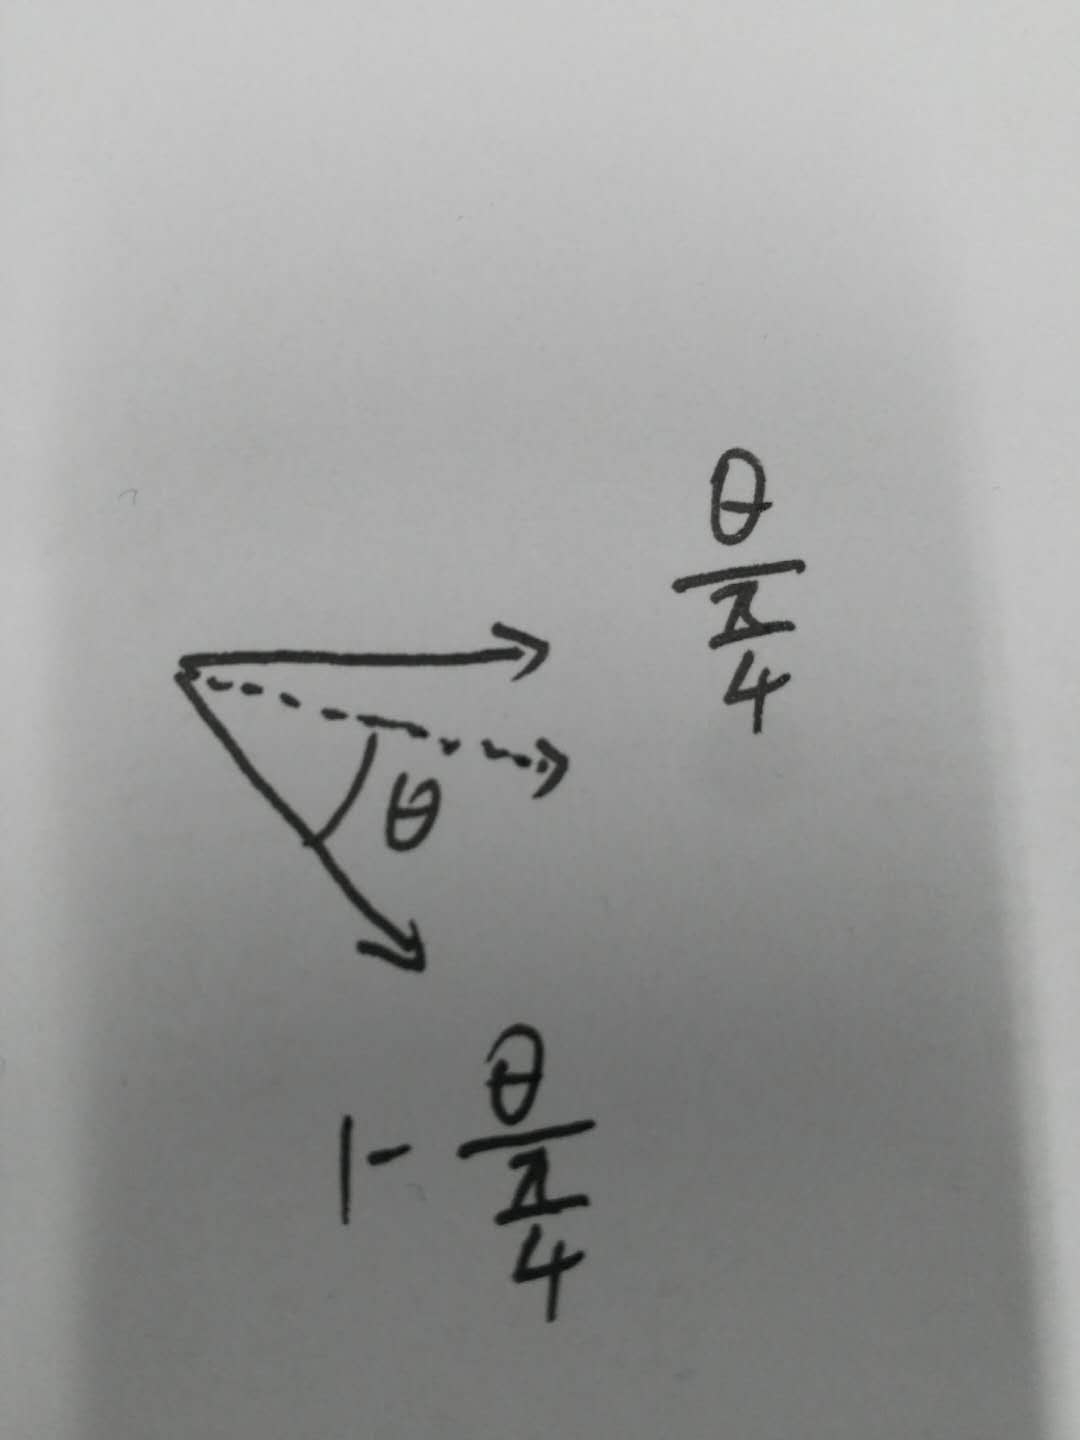 θ
π
4
θ
1-
θ
π
4